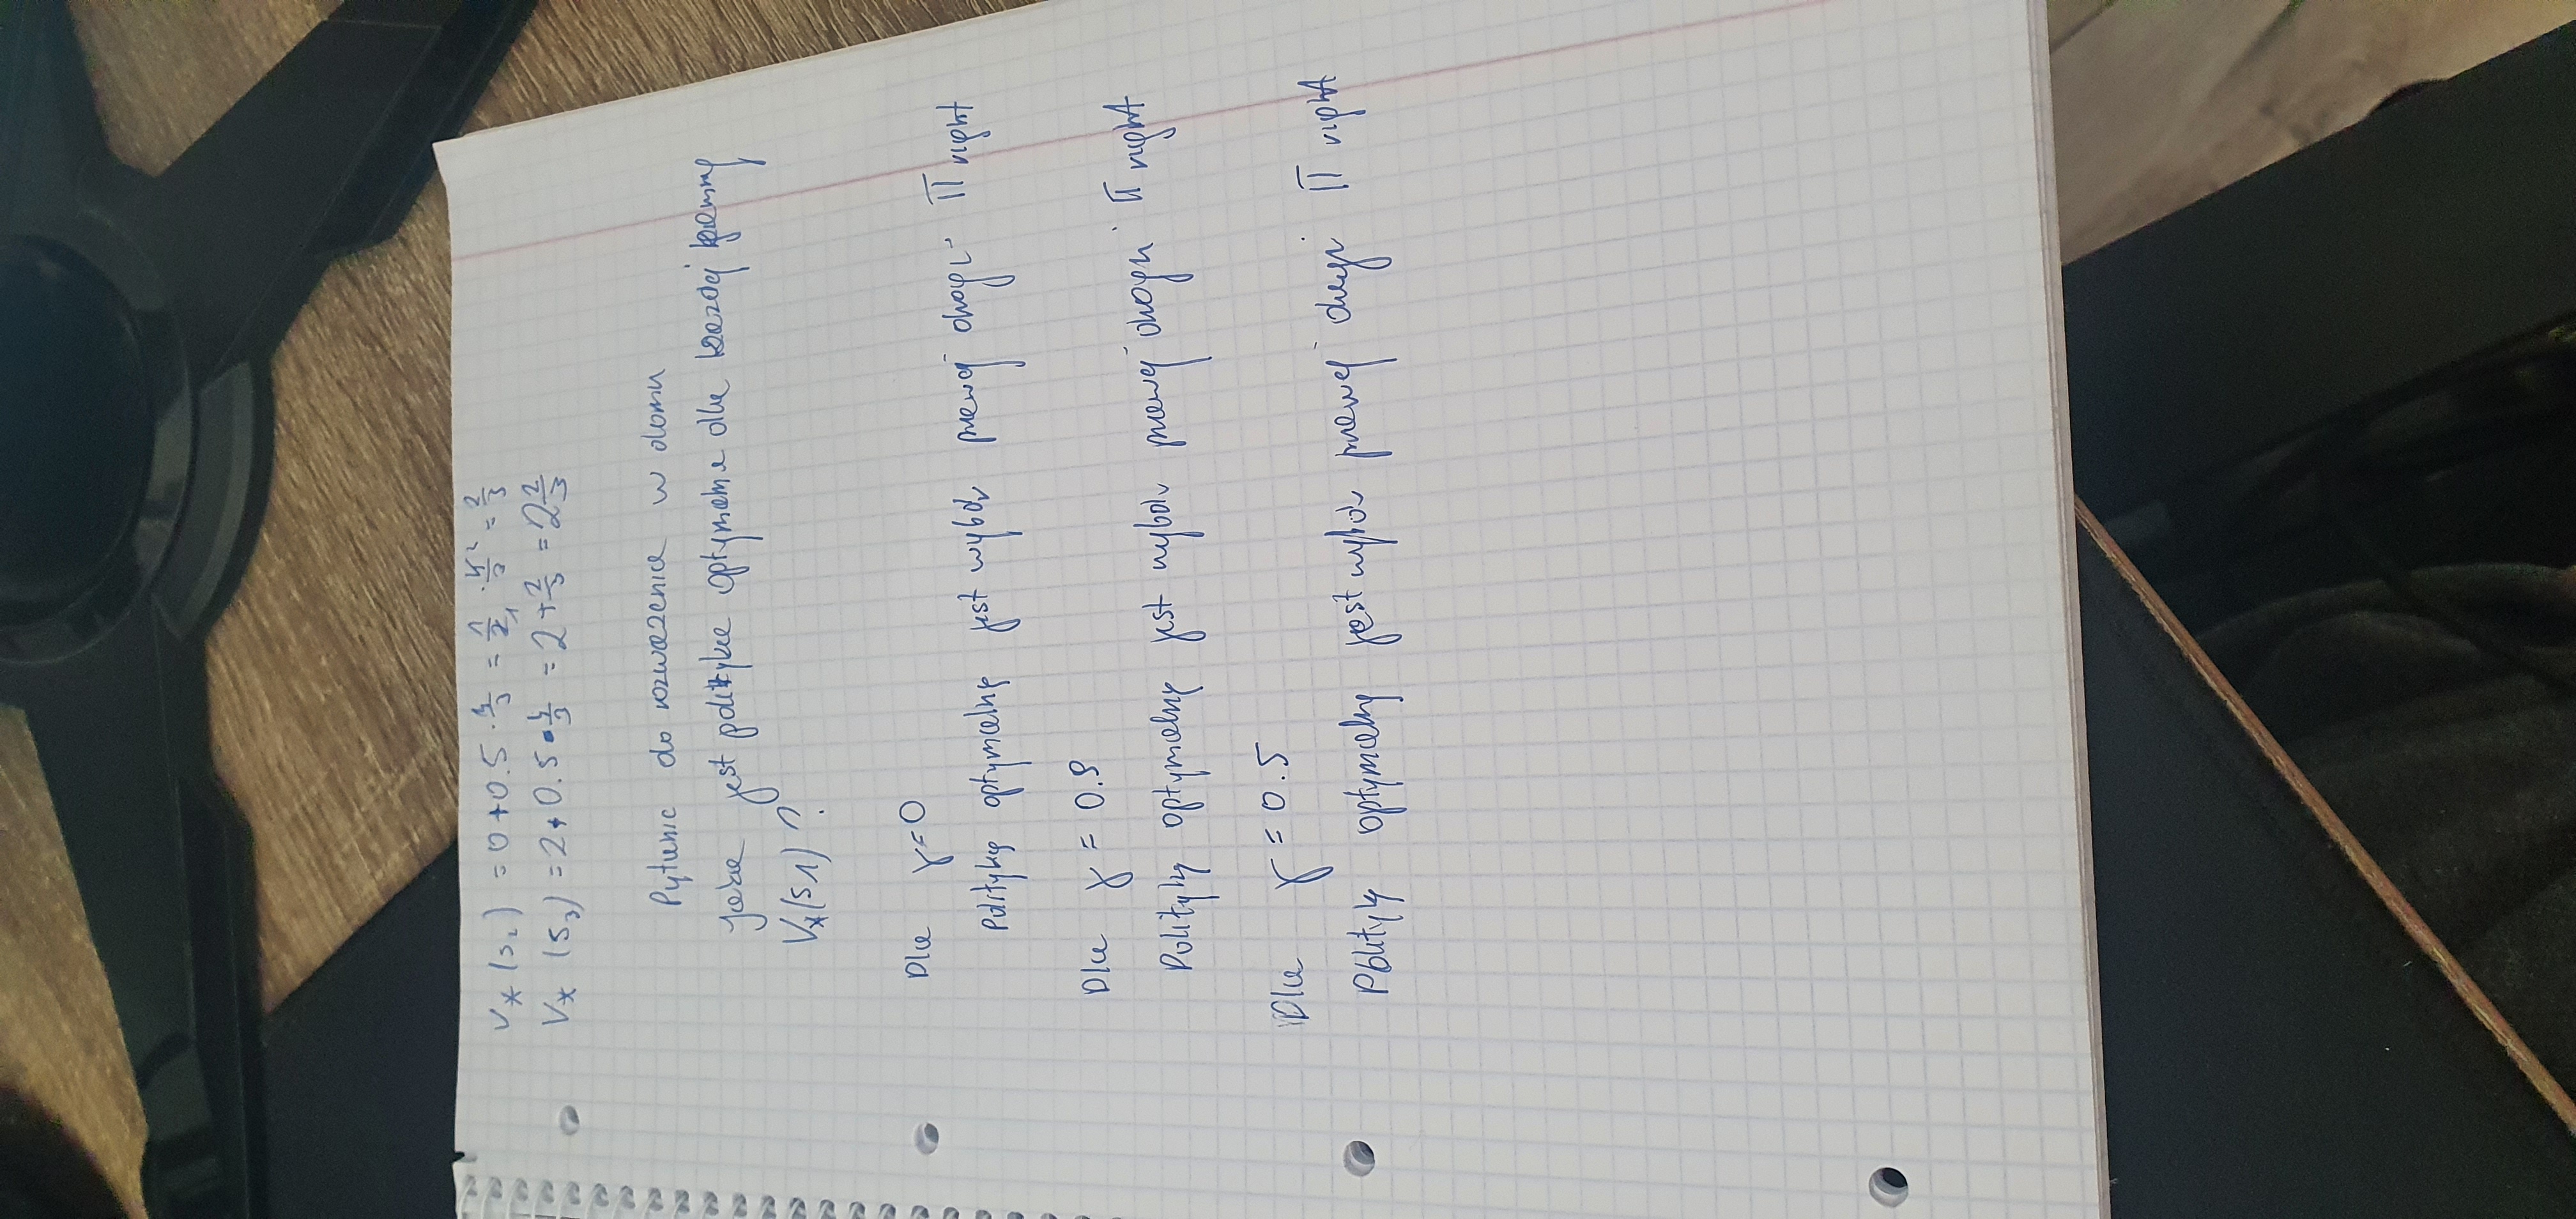 V* (s₂) = 0+0.5 · 4/3 = 1/2 · 4/3 = 2/3
V* (s₃) = 2+0.5 · 4/3 = 2+2/3 = 2 2/3
Pytanie do rozważenia w domu
Jaka jest polityka optymalna dla każdej gammy
V*(s1)?
Dla γ=0
Polityką optymalną jest wybór prawej drogi π right
Dla γ = 0.9
Polityką optymalną jest wybór prawej drogi π right
Dla γ = 0.5
Polityką optymalną jest wybór prawej drogi π right